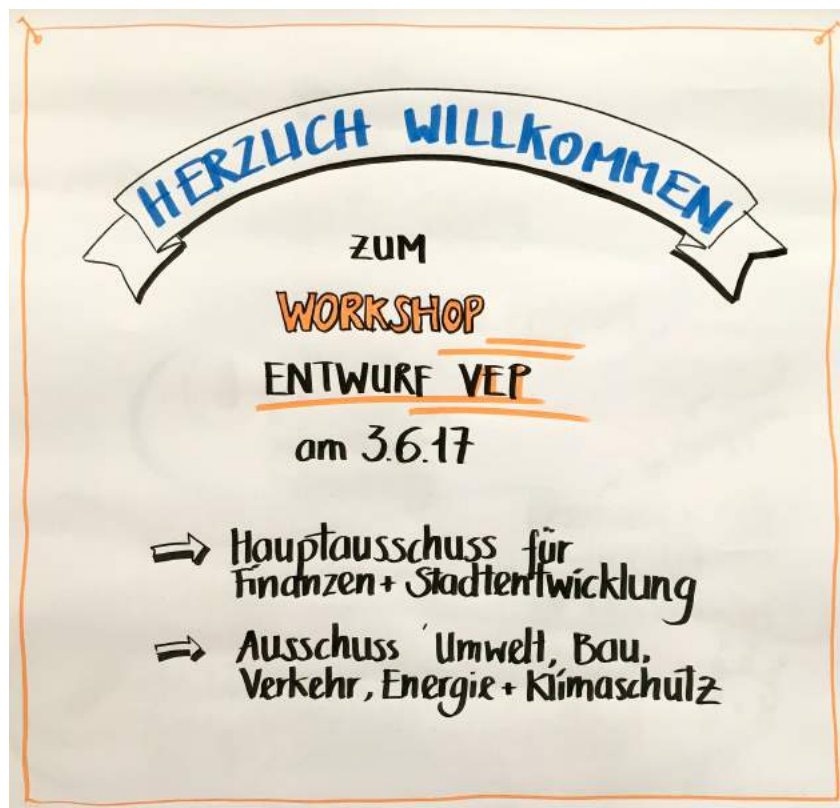 HERZLICH WILLKOMMEN
ZUM
WORKSHOP
ENTWURF VEP
am 3.6.17
Hauptausschuss für
Finanzen + Stadtentwicklung
Ausschuss Umwelt, Bau,
Verkehr, Energie + Klimaschutz